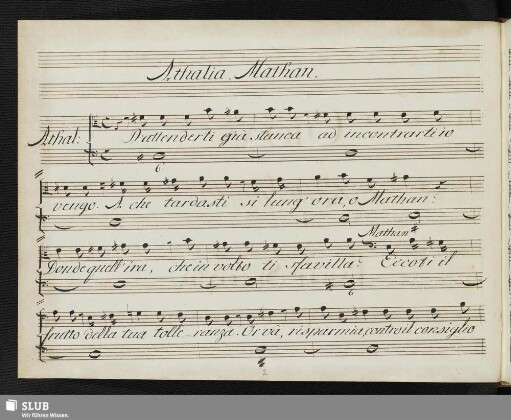 Athalia Mathan.
Athal: D'attenderti già stanca ad incontrarti io
6
vengo. A che tardasti si lung' ora, o Mathan?
Mathan
Donde quell' ira, che in volto ti sfavilla? Eccoti il
6
frutto della tua tolle-ranza. Or và, risparmia, contro il consiglio
SLUB
Wir führen Wissen.